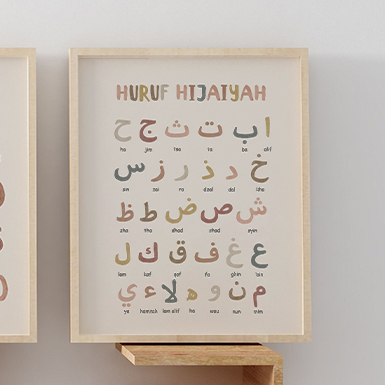 HURUF HIJAIYAH
ا ب ت ث ج ح
ha jim tsa ta ba alif
خ د ذ ر ز س
sin zai ra dzal dal kha
ش ص ض ط ظ
zha tha dhad shad syin
ع غ ف ق ك ل
lam kaf qaf fa ghin 'ain
م ن و ه لا ء ي
ya hamzah lam alif ha wau nun mim